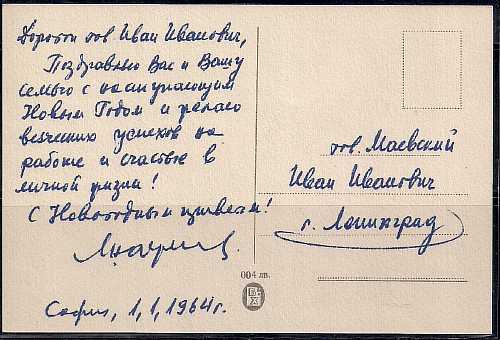 Дорогой тов Иван Иванович,
Поздравляю Вас и Вашу
семью с наступающим
Новым Годом и желаю
всяческих успехов на
работе и счастье в
личной жизни!
С Новогодным приветом!
София, 1,1,1964г.
004 лв.
тов. Маевский
Иван Иванович
г. Ленинград